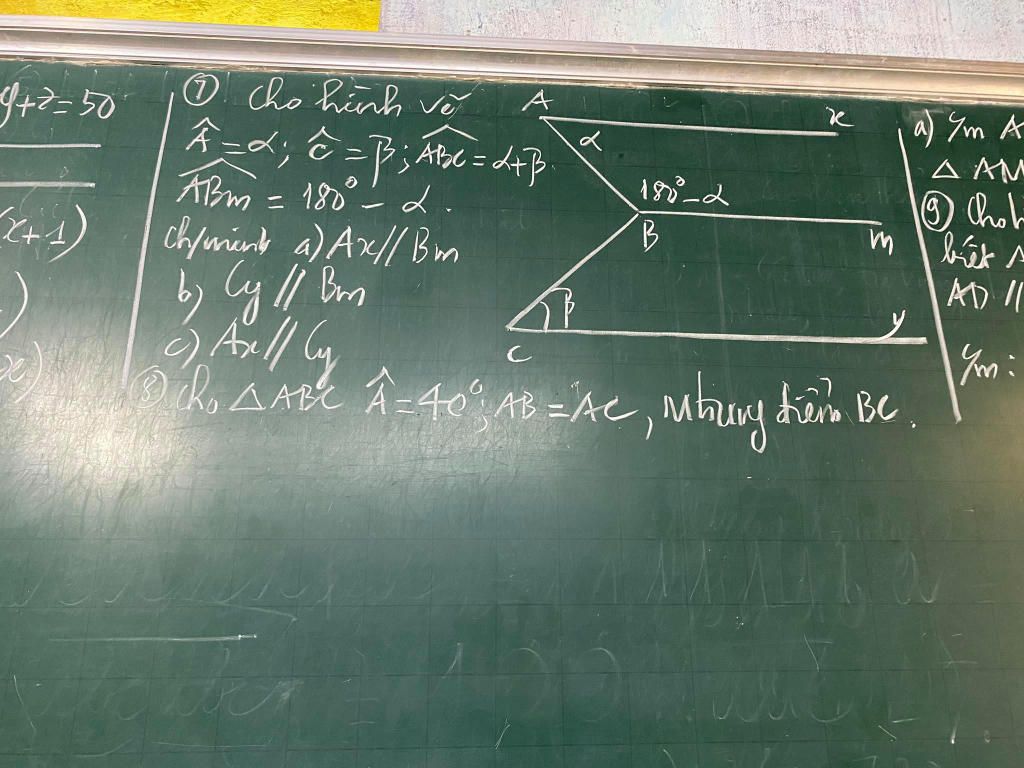 y+z=50
(x+1)
)
x)
⑦ Cho hình vẽ
Â=α; Ĉ=β; ABC=α+β.
ABm = 180° - α.
ch/minh a) Ax // Bm
b) Cy // Bm
c) Ax // Cy
A x
α
180°-α
B m
β
C y
⑧ Cho △ABC Â=40°; AB=AC, M trung điểm BC.
a) T/m A
△ AM
⑨ Cho h
biết A
AD //
T/m: